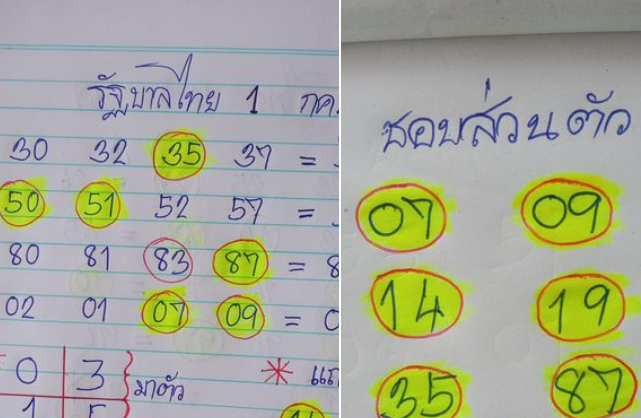 รัฐบาลไทย 1 กค.
30 32 35 37 =
50 51 52 57 =
80 81 83 87 = 8
02 01 07 09 = 0
0 3 มาตัว * แถ
1 5
ชอบส่วนตัว
07 09
14 19
35 87